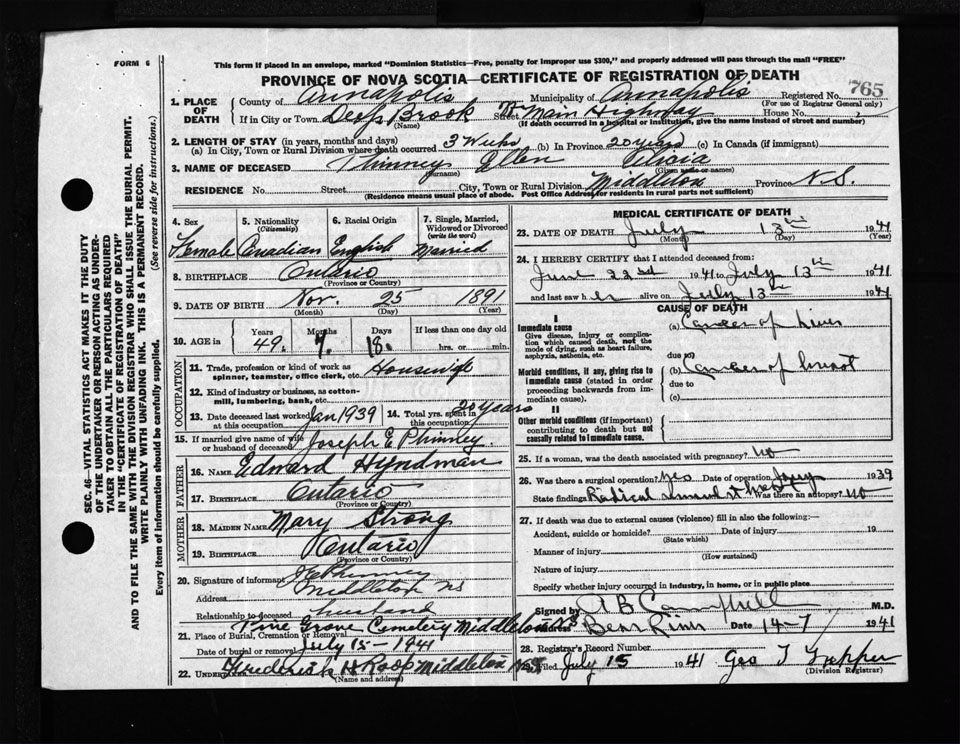 FORM 6
This form if placed in an envelope, marked "Dominion Statistics—Free, penalty for improper use $300," and properly addressed will pass through the mail "FREE"
PROVINCE OF NOVA SCOTIA—CERTIFICATE OF REGISTRATION OF DEATH
765
1. PLACE OF DEATH County of Annapolis Municipality of Annapolis Registered No.
(For use of Registrar General only)
If in City or Town Deep Brook Street Main Highway House No.
(Name) (If death occurred in a hospital or institution, give the name instead of street and number)
2. LENGTH OF STAY (in years, months and days)
(a) In City, Town or Rural Division where death occurred 3 Weeks (b) In Province 20 years (c) In Canada (if immigrant)
3. NAME OF DECEASED Phinney Ellen
(Surname) (Given name or names)
RESIDENCE No. Street City, Town or Rural Division Middleton Province N.S.
(Residence means usual place of abode. Post Office Address for residents in rural parts not sufficient)
4. Sex Female
5. Nationality (Citizenship) Canadian
6. Racial Origin English
7. Single, Married, Widowed or Divorced (write the word) Married
8. BIRTHPLACE Ontario
(Province or Country)
9. DATE OF BIRTH Nov. 25 1891
(Month) (Day) (Year)
10. AGE in Years Months Days If less than one day old
49. 7. 18. hrs. or min.
OCCUPATION
11. Trade, profession or kind of work as spinner, teamster, office clerk, etc. Housewife
12. Kind of industry or business, as cotton-mill, lumbering, bank, etc.
13. Date deceased last worked at this occupation Jan 1939 14. Total yrs. spent in this occupation 20 years
15. If married give name of wife or husband of deceased Joseph E Phinney.
FATHER
16. NAME Edward Hyndman
17. BIRTHPLACE Ontario
(Province or Country)
MOTHER
18. MAIDEN NAME Mary Strong
19. BIRTHPLACE Ontario
(Province or Country)
20. Signature of informant J E Phinney
Address Middleton NS
Relationship to deceased husband
21. Place of Burial, Cremation or Removal Pine Grove Cemetery Middleton NS
Date of burial or removal July 15-1941
22. UNDERTAKER Frederick H Roop Middleton NS
(Name and address)
MEDICAL CERTIFICATE OF DEATH
23. DATE OF DEATH July 13th 1941
(Month) (Day) (Year)
24. I HEREBY CERTIFY that I attended deceased from:
June 22nd 1941 to July 13th 1941
and last saw her alive on July 13th 1941
CAUSE OF DEATH
I
Immediate cause
Give disease, injury or complication which caused death, not the mode of dying, such as heart failure, asphyxia, asthenia, etc.
(a) Cancer of Liver
due to
Morbid conditions, if any, giving rise to immediate cause (stated in order proceeding backwards from immediate cause).
(b) Cancer of breast
due to
(c)
II
Other morbid conditions (if important) contributing to death but not causally related to immediate cause.
25. If a woman, was the death associated with pregnancy? no
26. Was there a surgical operation? yes Date of operation 1939
State findings Radical Was there an autopsy? no
27. If death was due to external causes (violence) fill in also the following:—
Accident, suicide or homicide? Date of injury 19
(State which)
Manner of injury
(How sustained)
Nature of injury
Specify whether injury occurred in industry, in home, or in public place
Signed by A B Campbell M.D.
Address Bear River Date 14-7 1941
28. Registrar's Record Number
29. Filed July 15 1941 Geo T
(Division Registrar)
SEC. 46—VITAL STATISTICS ACT MAKES IT THE DUTY OF THE UNDERTAKER OR PERSON ACTING AS UNDERTAKER TO OBTAIN ALL THE PARTICULARS REQUIRED IN THE "CERTIFICATE OF REGISTRATION OF DEATH" AND TO FILE THE SAME WITH THE DIVISION REGISTRAR WHO SHALL ISSUE THE BURIAL PERMIT.
WRITE PLAINLY WITH UNFADING INK. THIS IS A PERMANENT RECORD.
Every item of information should be carefully supplied. (See reverse side for instructions.)